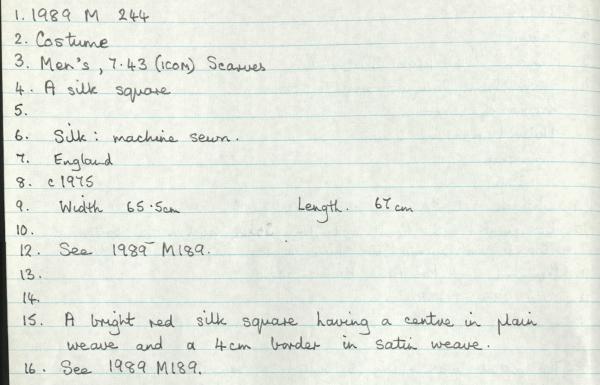 1. 1989 M 244
2. Costume
3. Men's, 7.43 (ICOM) Scarves
4. A silk square
5.
6. Silk: machine sewn.
7. England
8. c 1975
9. Width 65.5cm Length. 67cm
10.
12. See 1989 M189.
13.
14.
15. A bright red silk square having a centre in plain
weave and a 4cm border in satin weave.
16. See 1989 M189.